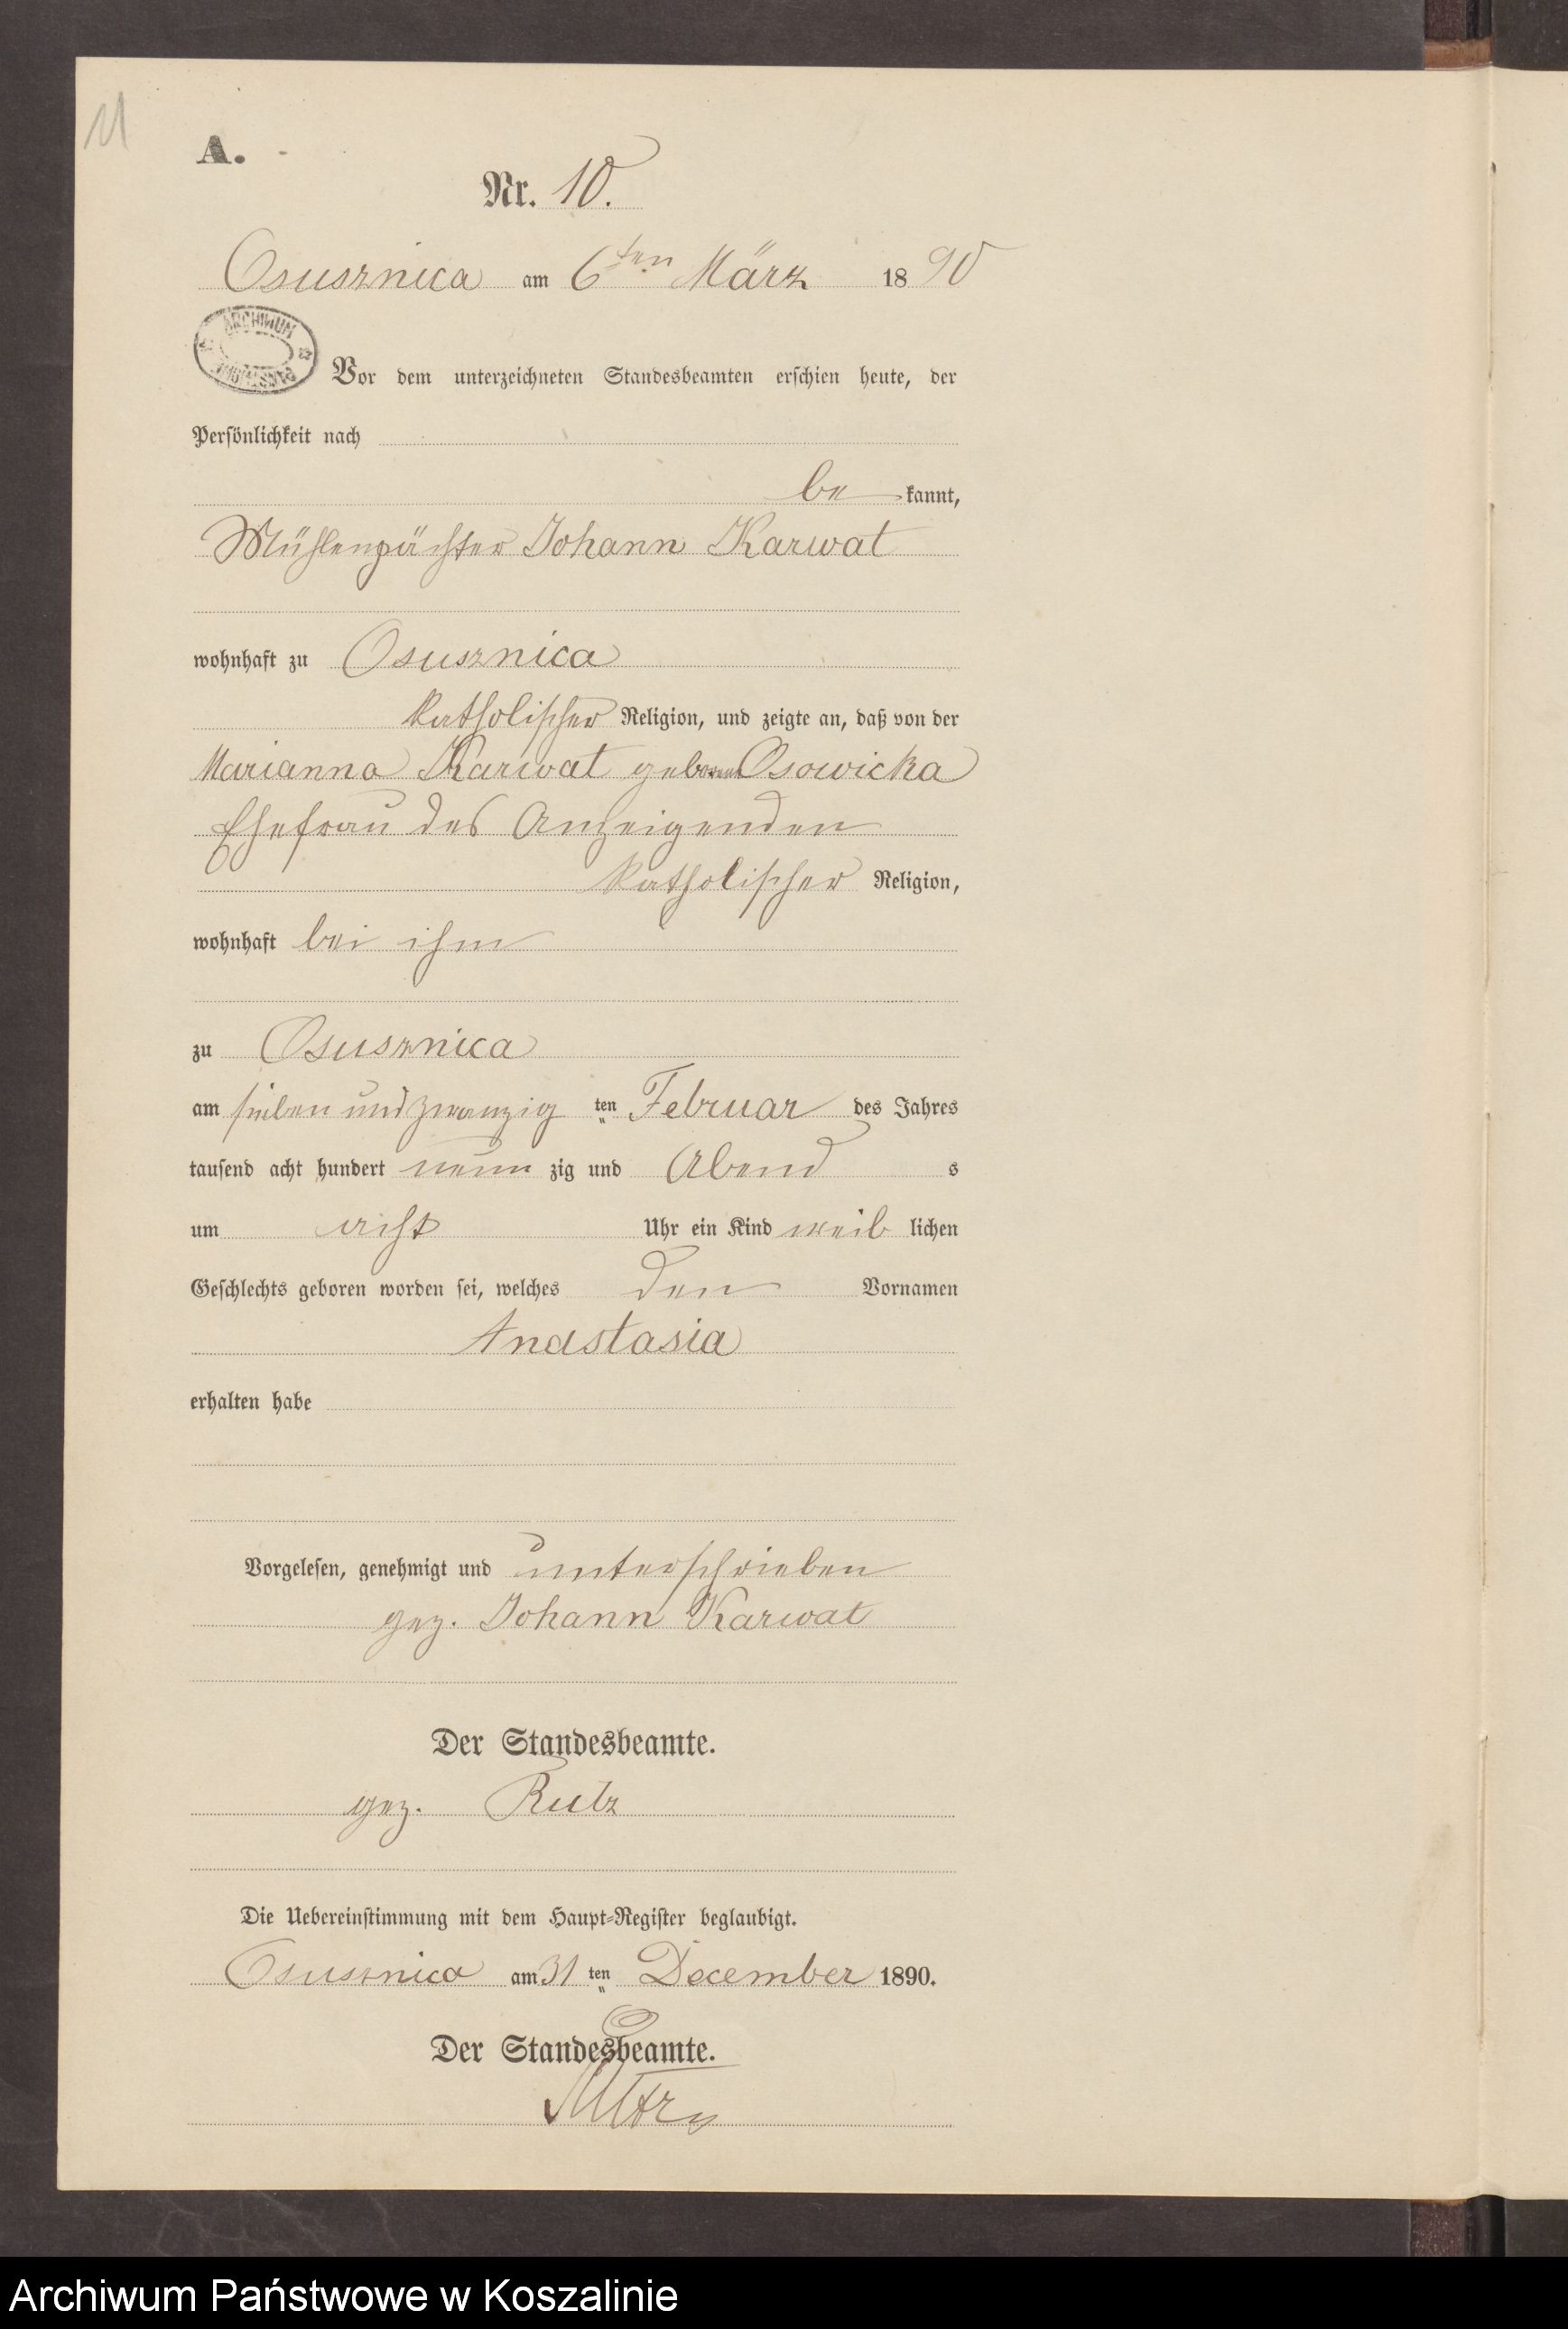 11
A.
Nr. 10.
Osusznica am 6ten März 1890
ARCHIWUM
Vor dem unterzeichneten Standesbeamten erschien heute, der
Persönlichkeit nach
be kannt,
Mühlenpächter Johann Karwat
wohnhaft zu Osusznica
katholischer Religion, und zeigte an, daß von der
Marianna Karwat geborene Osowicka
Ehefrau des Anzeigenden
katholischer Religion,
wohnhaft bei ihm
zu Osusznica
am sieben und zwanzig ten Februar des Jahres
tausend acht hundert neun zig und Abend s
um acht Uhr ein Kind weib lichen
Geschlechts geboren worden sei, welches den Vornamen
Anastasia
erhalten habe
Vorgelesen, genehmigt und unterschrieben
gez. Johann Karwat
Der Standesbeamte.
gez.
Die Uebereinstimmung mit dem Haupt-Register beglaubigt.
Osusznica am 31 ten December 1890.
Der Standesbeamte.
Archiwum Państwowe w Koszalinie